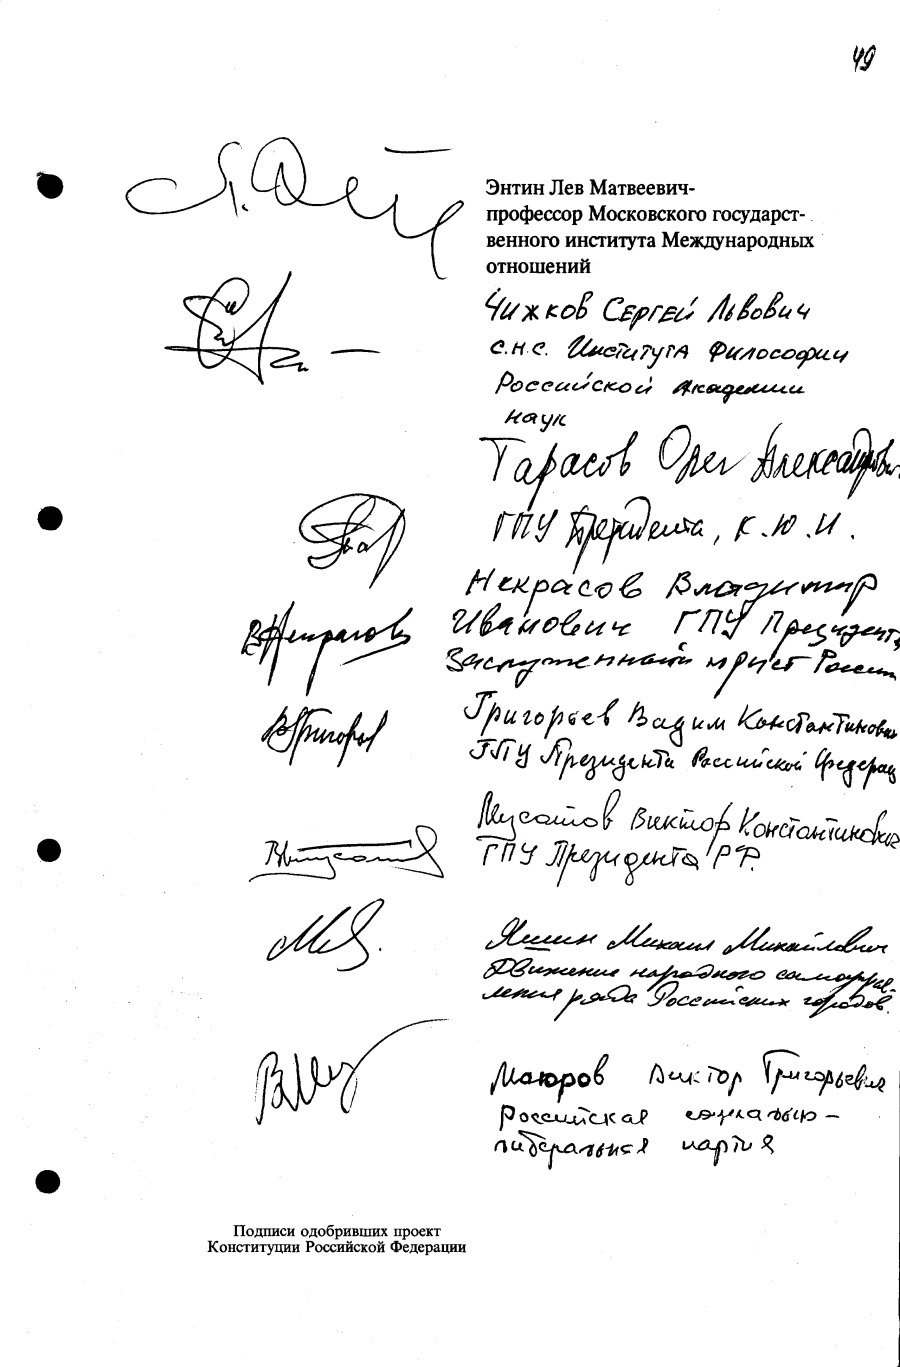 49
Энтин Лев Матвеевич-
профессор Московского государст-
венного института Международных
отношений
Чижков Сергей Львович
с.н.с. Института Философии
Российской Академии
наук
Тарасов Олег Александрович
ГПУ Президента, к.ю.н.
Некрасов Владимир
В Некрасов Иванович ГПУ Президента
Заслуженный юрист России
Григорьев Вадим Константинович
В Григорьев ГПУ Президента Российской Федерац
Мусатов Виктор Константинович
ГПУ Президента РФ.
Яшин Михаил Михайлович
Движение народного самоуправ-
ления ряда Российских городов.
Маюров Виктор Григорьевич
Российская социально-
либеральная партия
Подписи одобривших проект
Конституции Российской Федерации